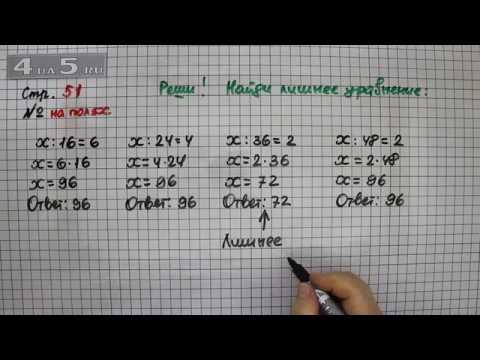 4 на 5.ru
Стр. 51 Реши! Найди лишнее уравнение:
№ на полях
x:16=6 x:24=4 x:36=2 x:48=2
x=6·16 x=4·24 x=2·36 x=2·48
x=96 x=96 x=72 x=96
Ответ: 96 Ответ: 96 Ответ: 72 Ответ: 96
Лишнее